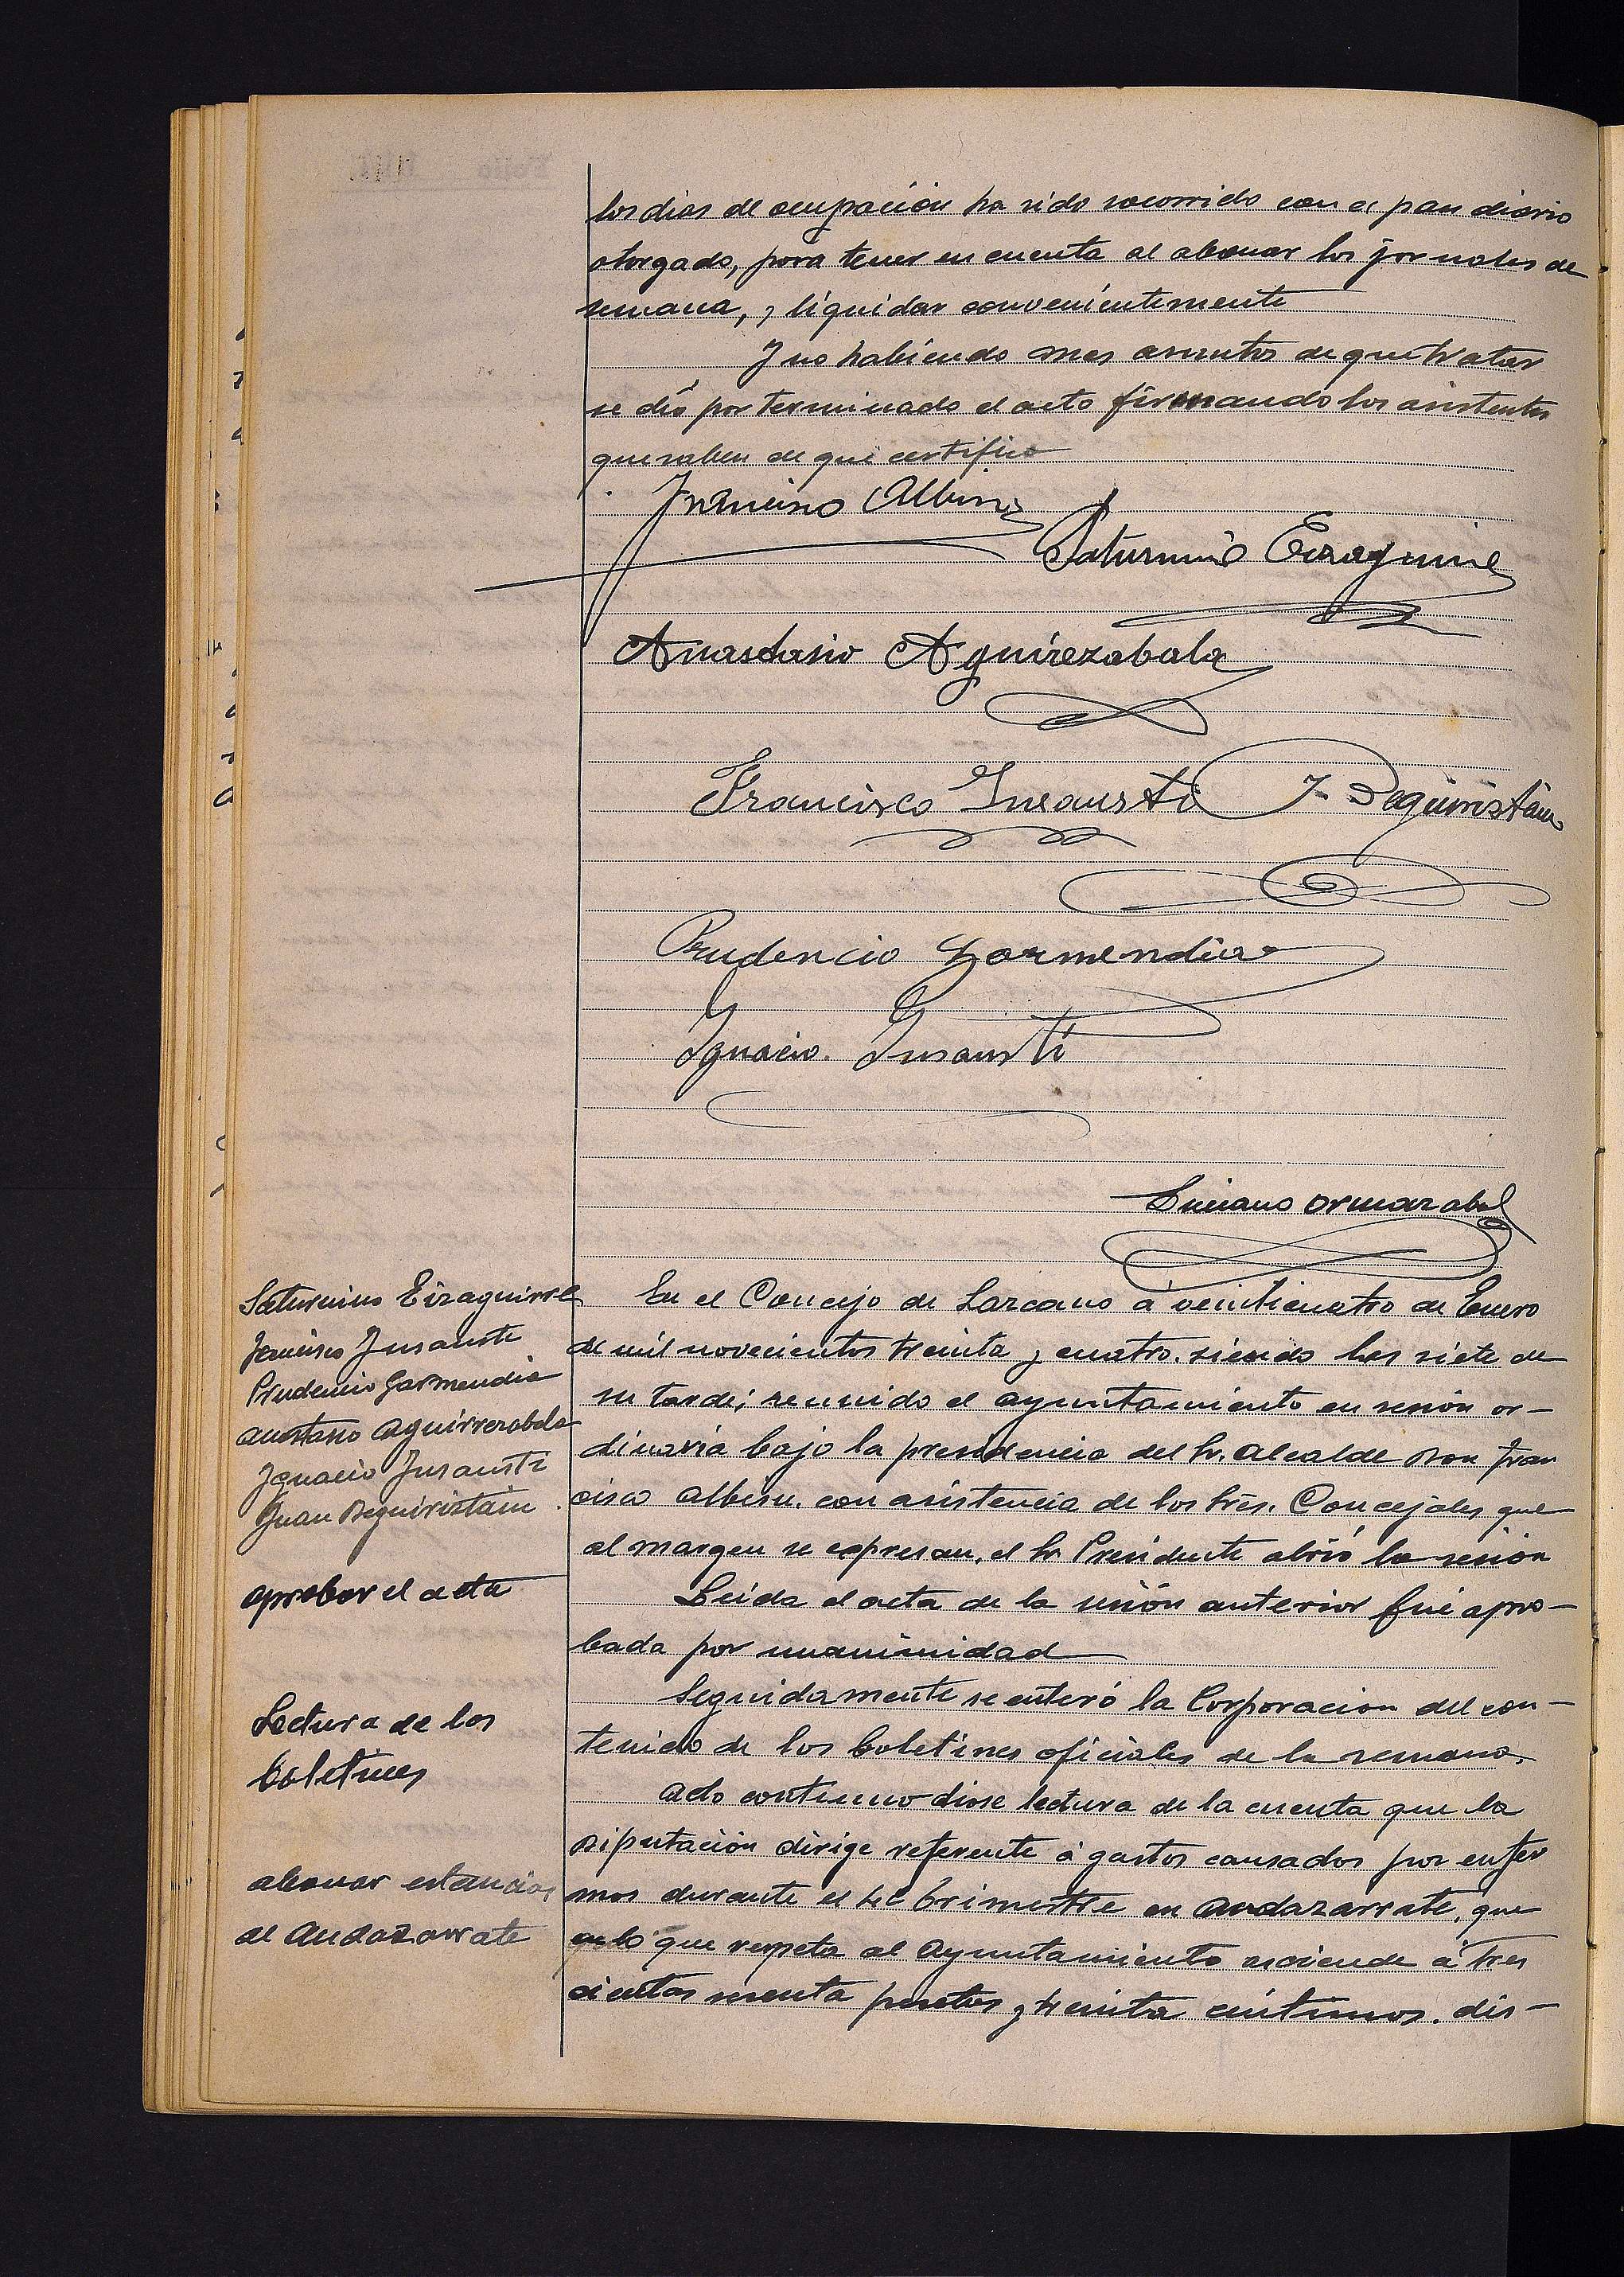 los dias de ocupación ha sido socorrido con el pan diario
otorgado, para tener en cuenta al abonar los jornales de
semana, y liquidar convenientemente
Y no habiendo mas asuntos de que tratar
se dió por terminado el acto firmando los asistentes
que saben de que certifico
Francisco Albisu
Saturnino Eizaguirre
Anastasio Aguirezabala
Francisco Insausti J. Beguiristain
Prudencio Garmendia
Ignacio Insausti
Luciano Ormazabal
Saturnino Eizaguirre
Francisco Insausti
Prudencio Garmendia
Anastasio Aguirrezabala
Ignacio Insausti
Juan Beguiristain
En el Concejo de Lazcano á veinticuatro de Enero
de mil novecientos treinta y cuatro. siendo las siete de
su tarde; reunido el ayuntamiento en sesión or-
dinaria bajo la presidencia del Sr. Alcalde Don Fran
cisco Albisu. con asistencia de los Sres. Concejales que
al margen se expresan, el Sr Presidente abrió la sesión
aprobar el acta
Leida el acta de la sesión anterior fué apro-
bada por unanimidad
Lectura de los
boletines
Seguidamente se enteró la Corporacion del con-
tenido de los boletines oficiales de la semana.
abonar estancias
de Andazarrate
Acto continuo diose lectura de la cuenta que la
Diputación dirige referente á gastos causados por enfer
mos durante el trimestre en Andazarrate, que
en lo que respeta al Ayuntamiento asciende á tres
cientas sesenta pesetas y treinta céntimos. dis-